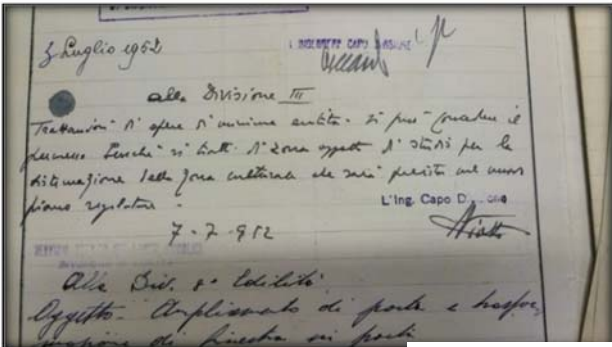 3 Luglio 1952
L'INGEGNERE CAPO
alla Divisione III
Trattandosi di opere di minima entità si può concedere il
permesso benché si tratti di zona oggetto di studi per la
sistemazione della zona culturale che sarà prevista nel nuovo
piano regolatore -
L'Ing. Capo
7-7-952
Alla Div. 8ª Edilità
Oggetto - Ampliamento di porta e trasfor,
mazione di finestra in porta